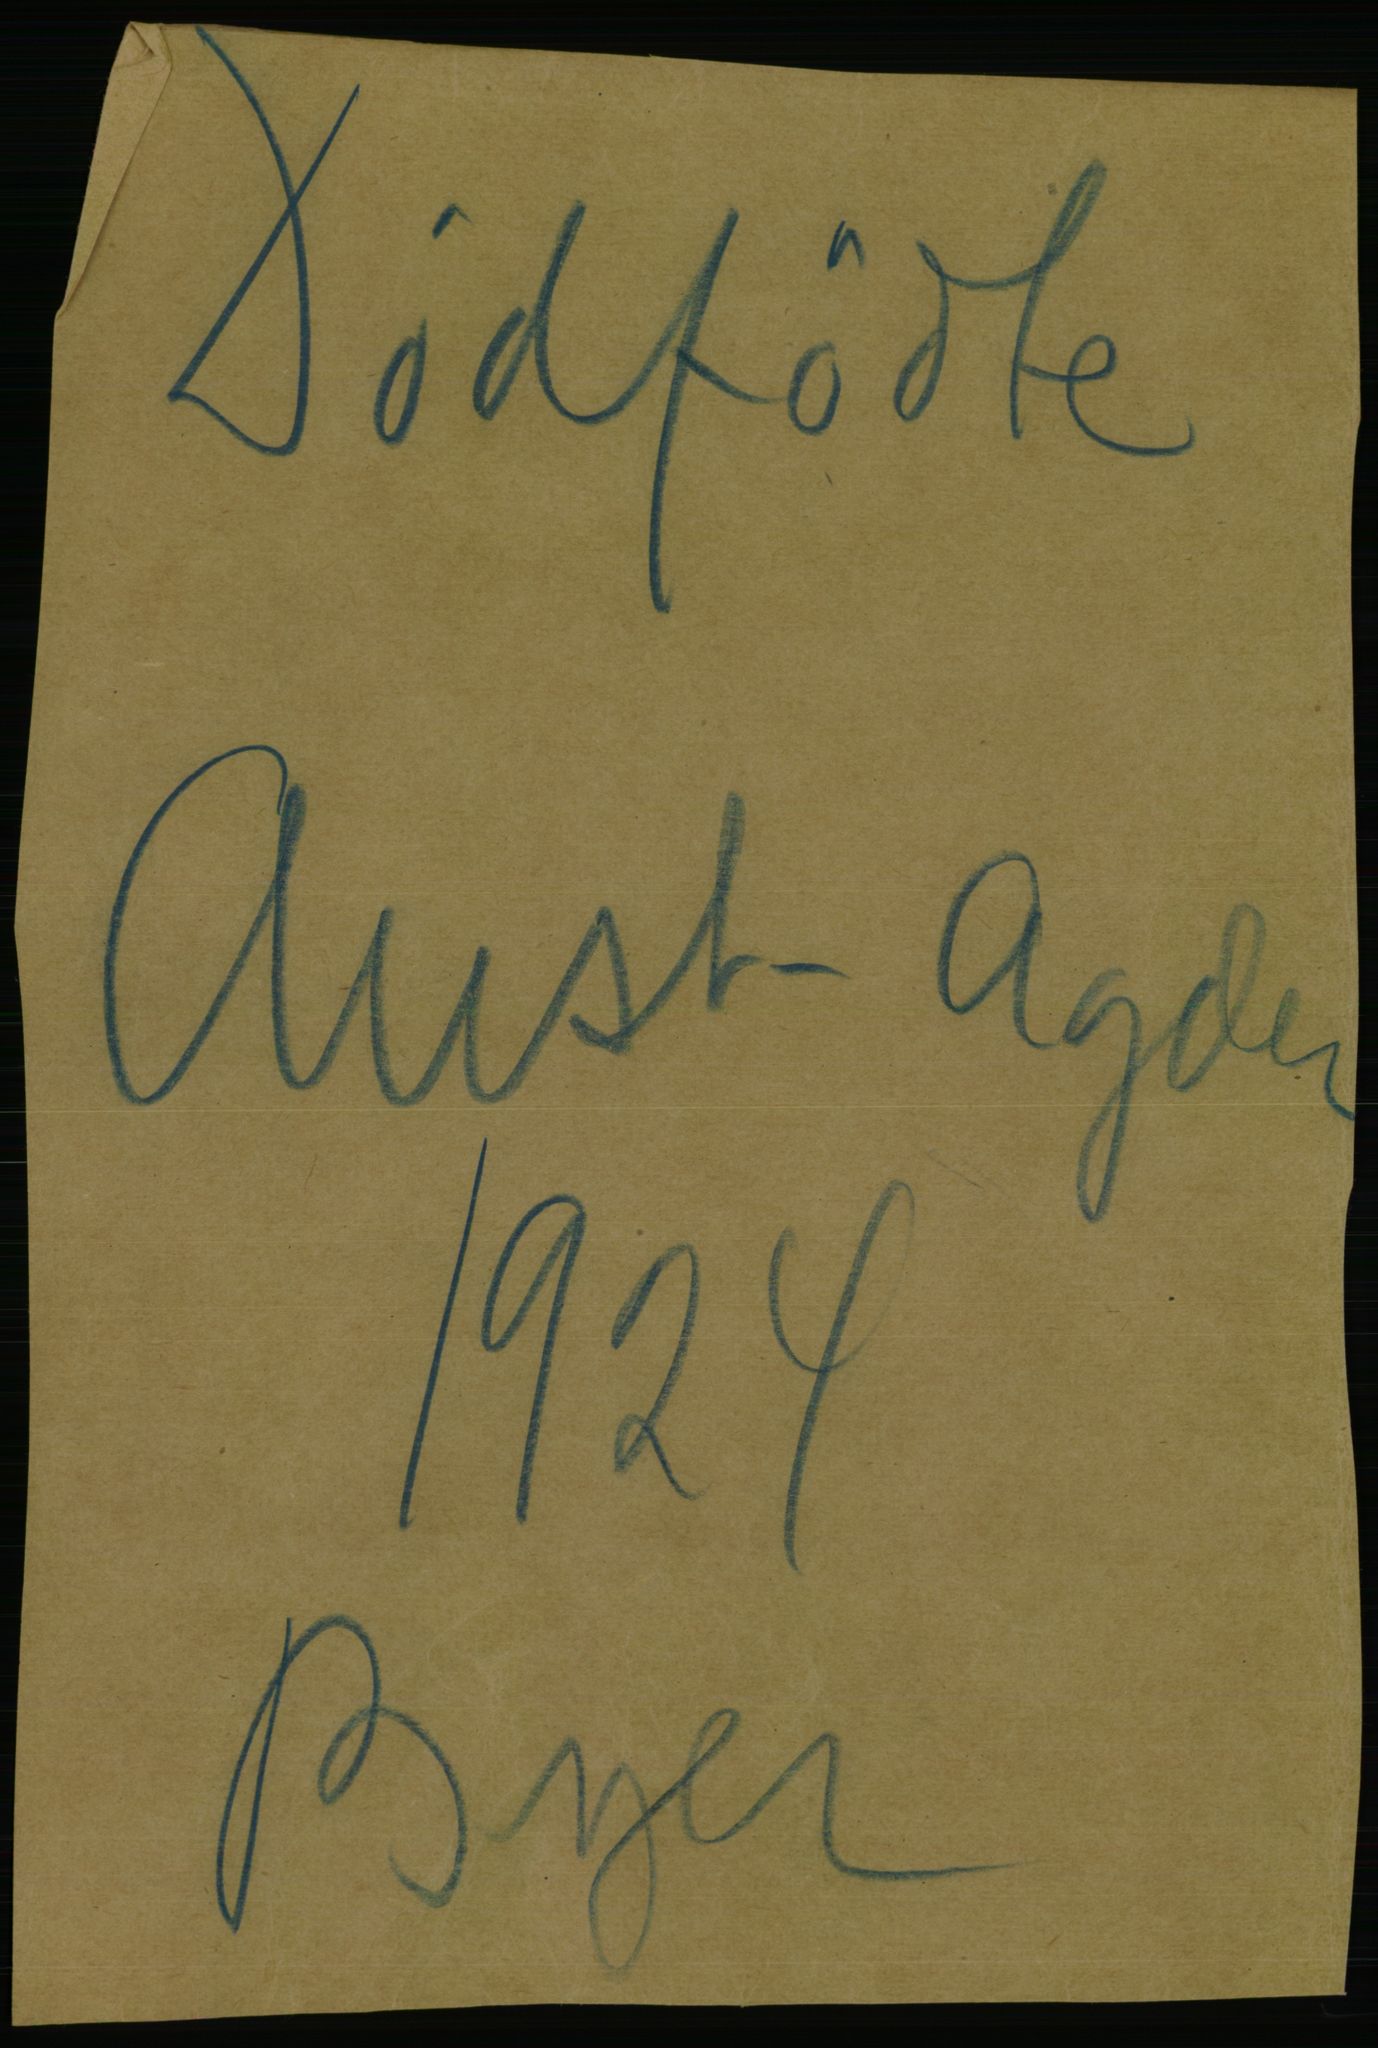 Dödfödte
Aust- Agder
1924
Byer